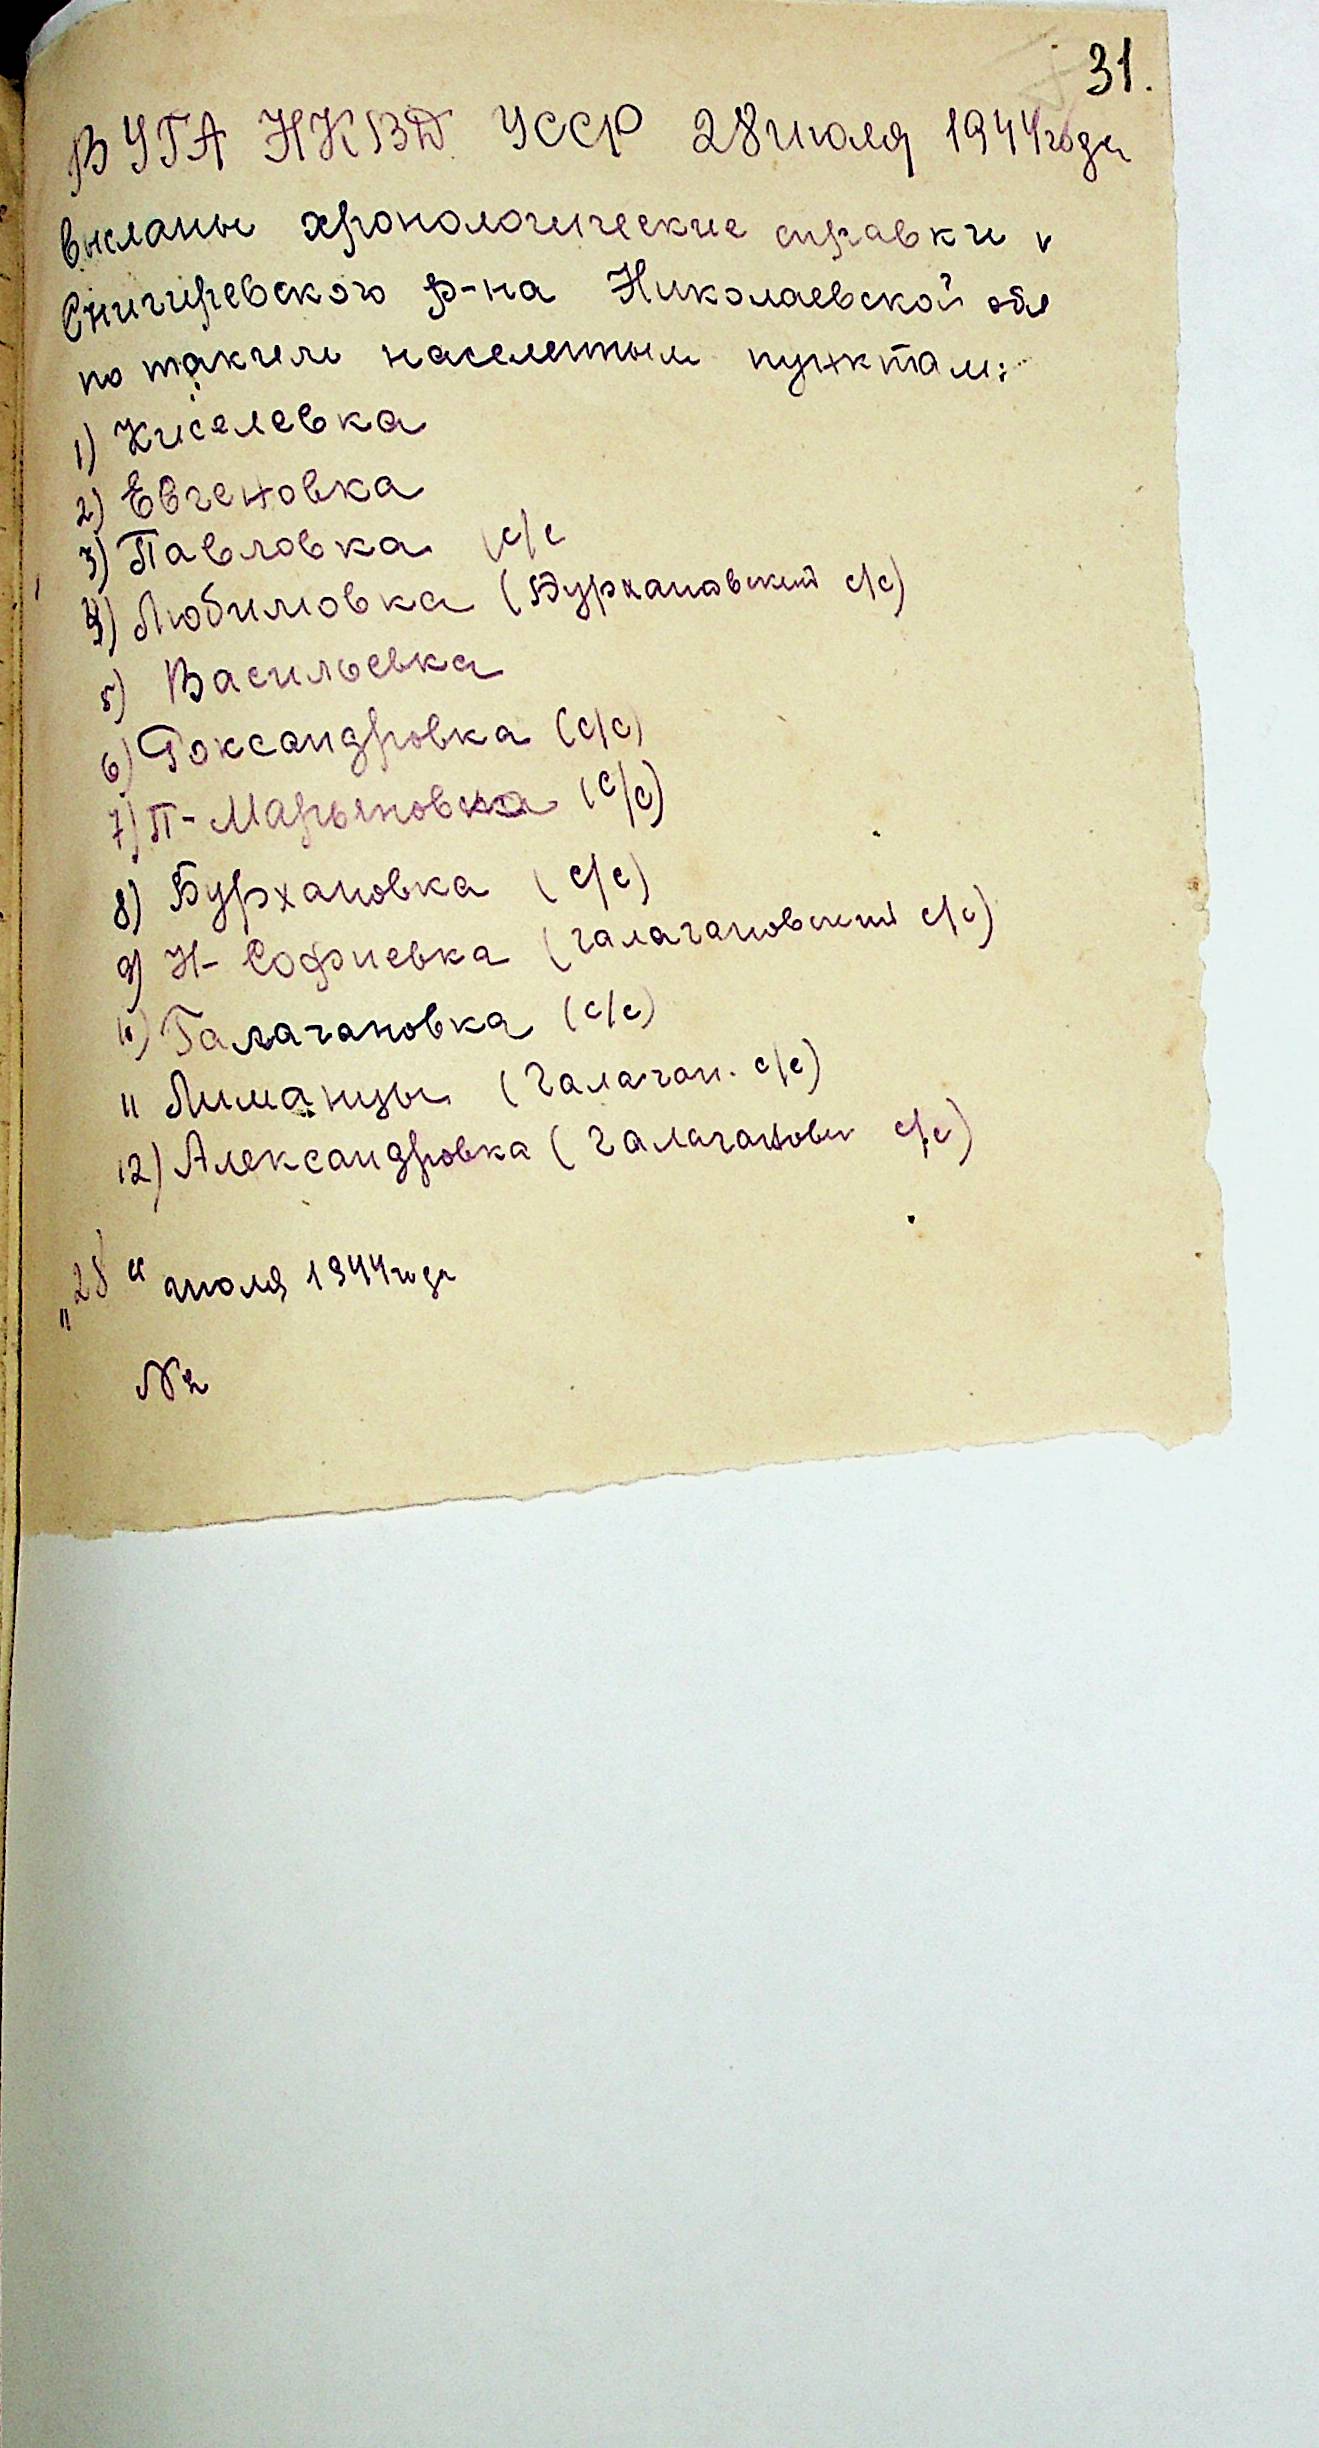 31.
В УГА НКВД УССР 28 июля 1944 года
высланы хронологические справки
Снигиревского р-на Николаевской обл
по таким населенным пунктам:
1) Киселевка
2) Евгеновка
3) Павловка (с/с
4) Любимовка (Бурхановский с/с)
5) Васильевка
6) Роксандровка (с/с)
7) П-Марьяновка (с/с)
8) Бурхановка (с/с)
9) Н-Софиевка (Галагановский с/с)
10) Галагановка (с/с)
11 Лиманцы (Галаган. с/с)
12) Александровка (Галагановск с/с)
„28“ июля 1944 года
№